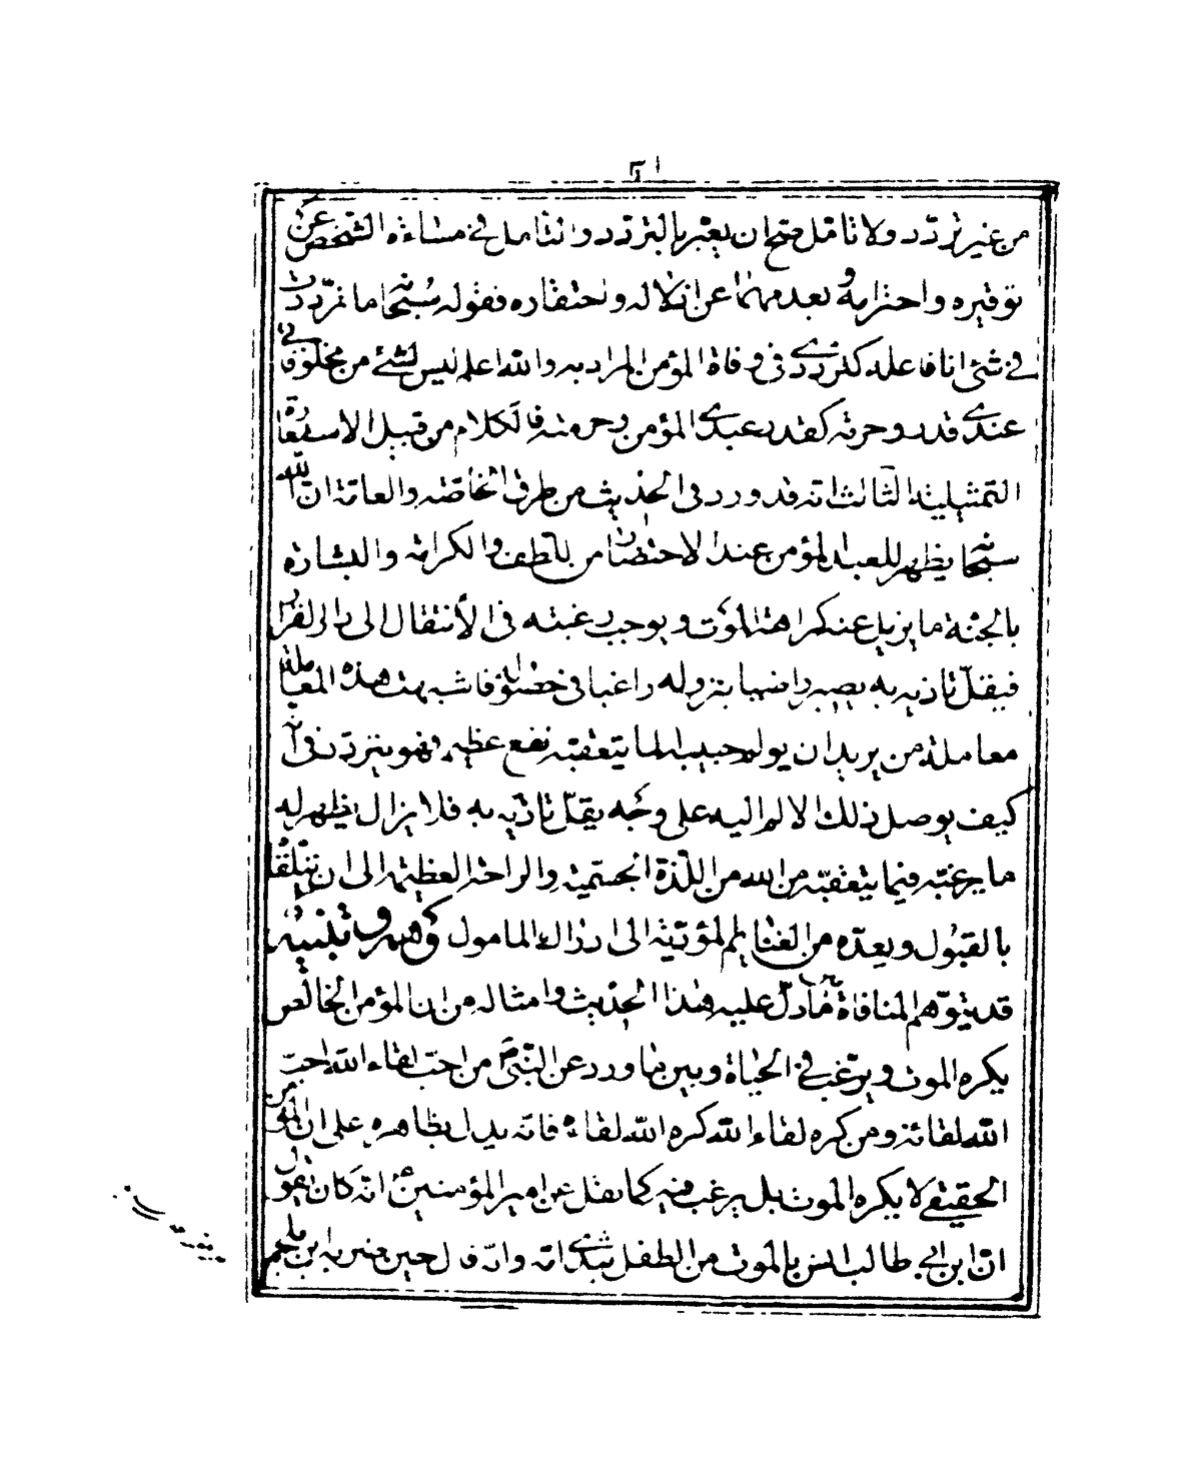 من غير تردد ولا تامل صح ان يعبر بالتردد والتامل في مساءة الشخص عن
توقيره واحترامه وبعدمهما عن اذلاله واحتقاره فقوله سبحانه ما ترددت
في شئ انا فاعله كترددي في وفاة المؤمن المراد به والله اعلم ليس لشئ من مخلوقاتي
عندي قدر وحرمة كقدر عبدي المؤمن وحرمته فالكلام من قبيل الاستعارة
التمثيلية الثالث انه قد ورد في الحديث من طرق الخاصة والعامة ان الله
سبحانه يظهر للعبد المؤمن عند الاحتضار من اللطف والكرامة والبشارة
بالجنة ما يزيل عنه كراهة الموت ويوجب رغبته في الأنتقال الى دار القرار
فيقل تاذيه به ويصير راضيا بنزوله راغبا في حصوله فاشبهت هذه المعاملة
معاملة من يريد ان يولم حبيبه الما يتعقبه نفع عظيم فهو يتردد في انه
كيف يوصل ذلك الالم اليه على وجه يقل تاذيه به فلا يزال يظهر له
ما يرغبه فيما يتعقبه من اللذة الجسمية والراحة العظيمة الى ان يتلقاه
بالقبول ويعده من الغنايم المؤدية الى ادراك المامول وهم وتنبيه
قد يتوهم المنافاة بين ما دل عليه هذا الحديث وامثاله من ان المؤمن الخالص
يكره الموت ويرغب في الحياة وبين ما ورد عن النبي ص من احب لقاء الله احب
الله لقائه ومن كره لقاء الله كره الله لقاءه فانه يدل بظاهره على ان المؤمن
الحقيقي لا يكره الموت بل يرغب فيه كما نقل عن امير المؤمنين ع انه كان يقول
ان ابن ابي طالب انس بالموت من الطفل بثدي امه وانه قال حين ضربه ابن ملجم